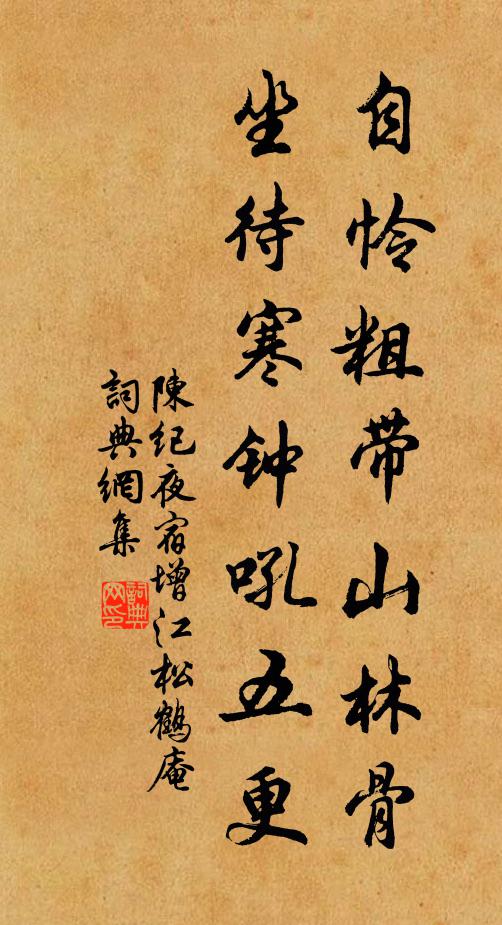 自怜粗带山林骨
坐待寒钟吼五更
陳紀夜宿增江松鶴庵
詞典網集
詞典网印